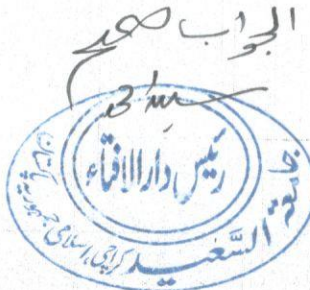 الجواب صحیح
رئیس دارالافتاء
جامعة السَّعید کراچی، اسلامی جمہوریہ پاکستان